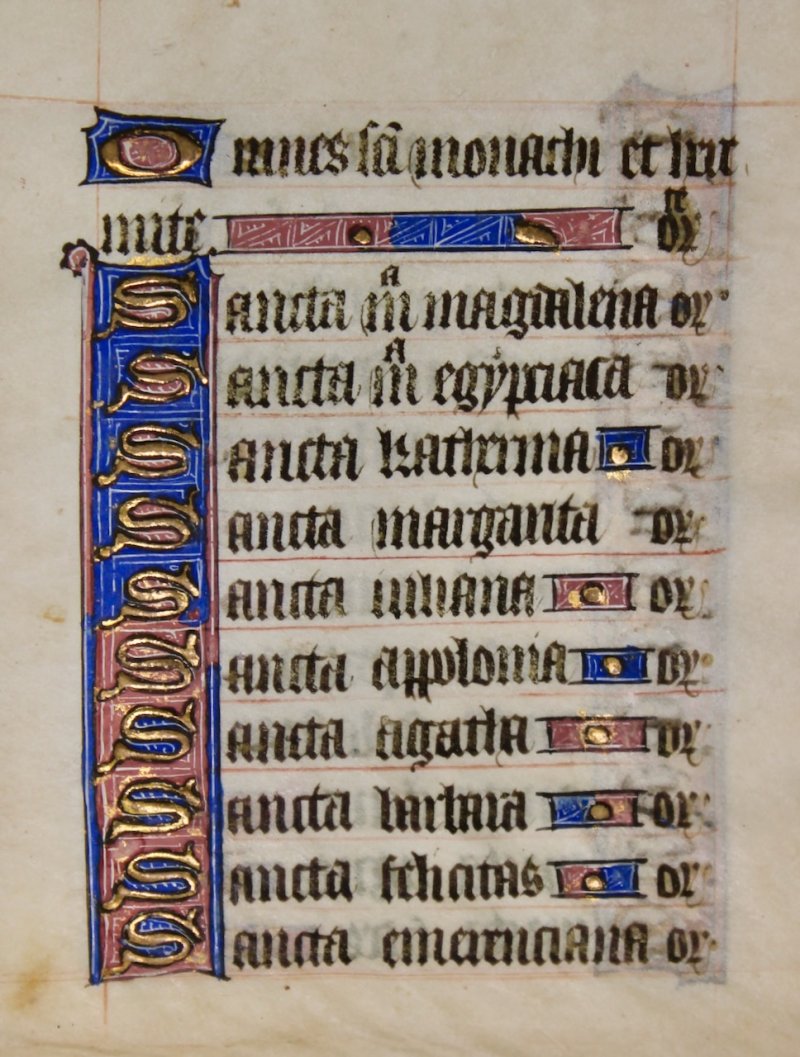 Omnes sc̄i monachi et here
mite. orͭͤ
Sancta mͣ magdalena or
Sancta mͣ egypciaca or
Sancta katherina or
Sancta margarita or
Sancta iuliana or
Sancta appolonia or
Sancta agatha or
Sancta barbara or
Sancta felicitas or
Sancta emerenciana or